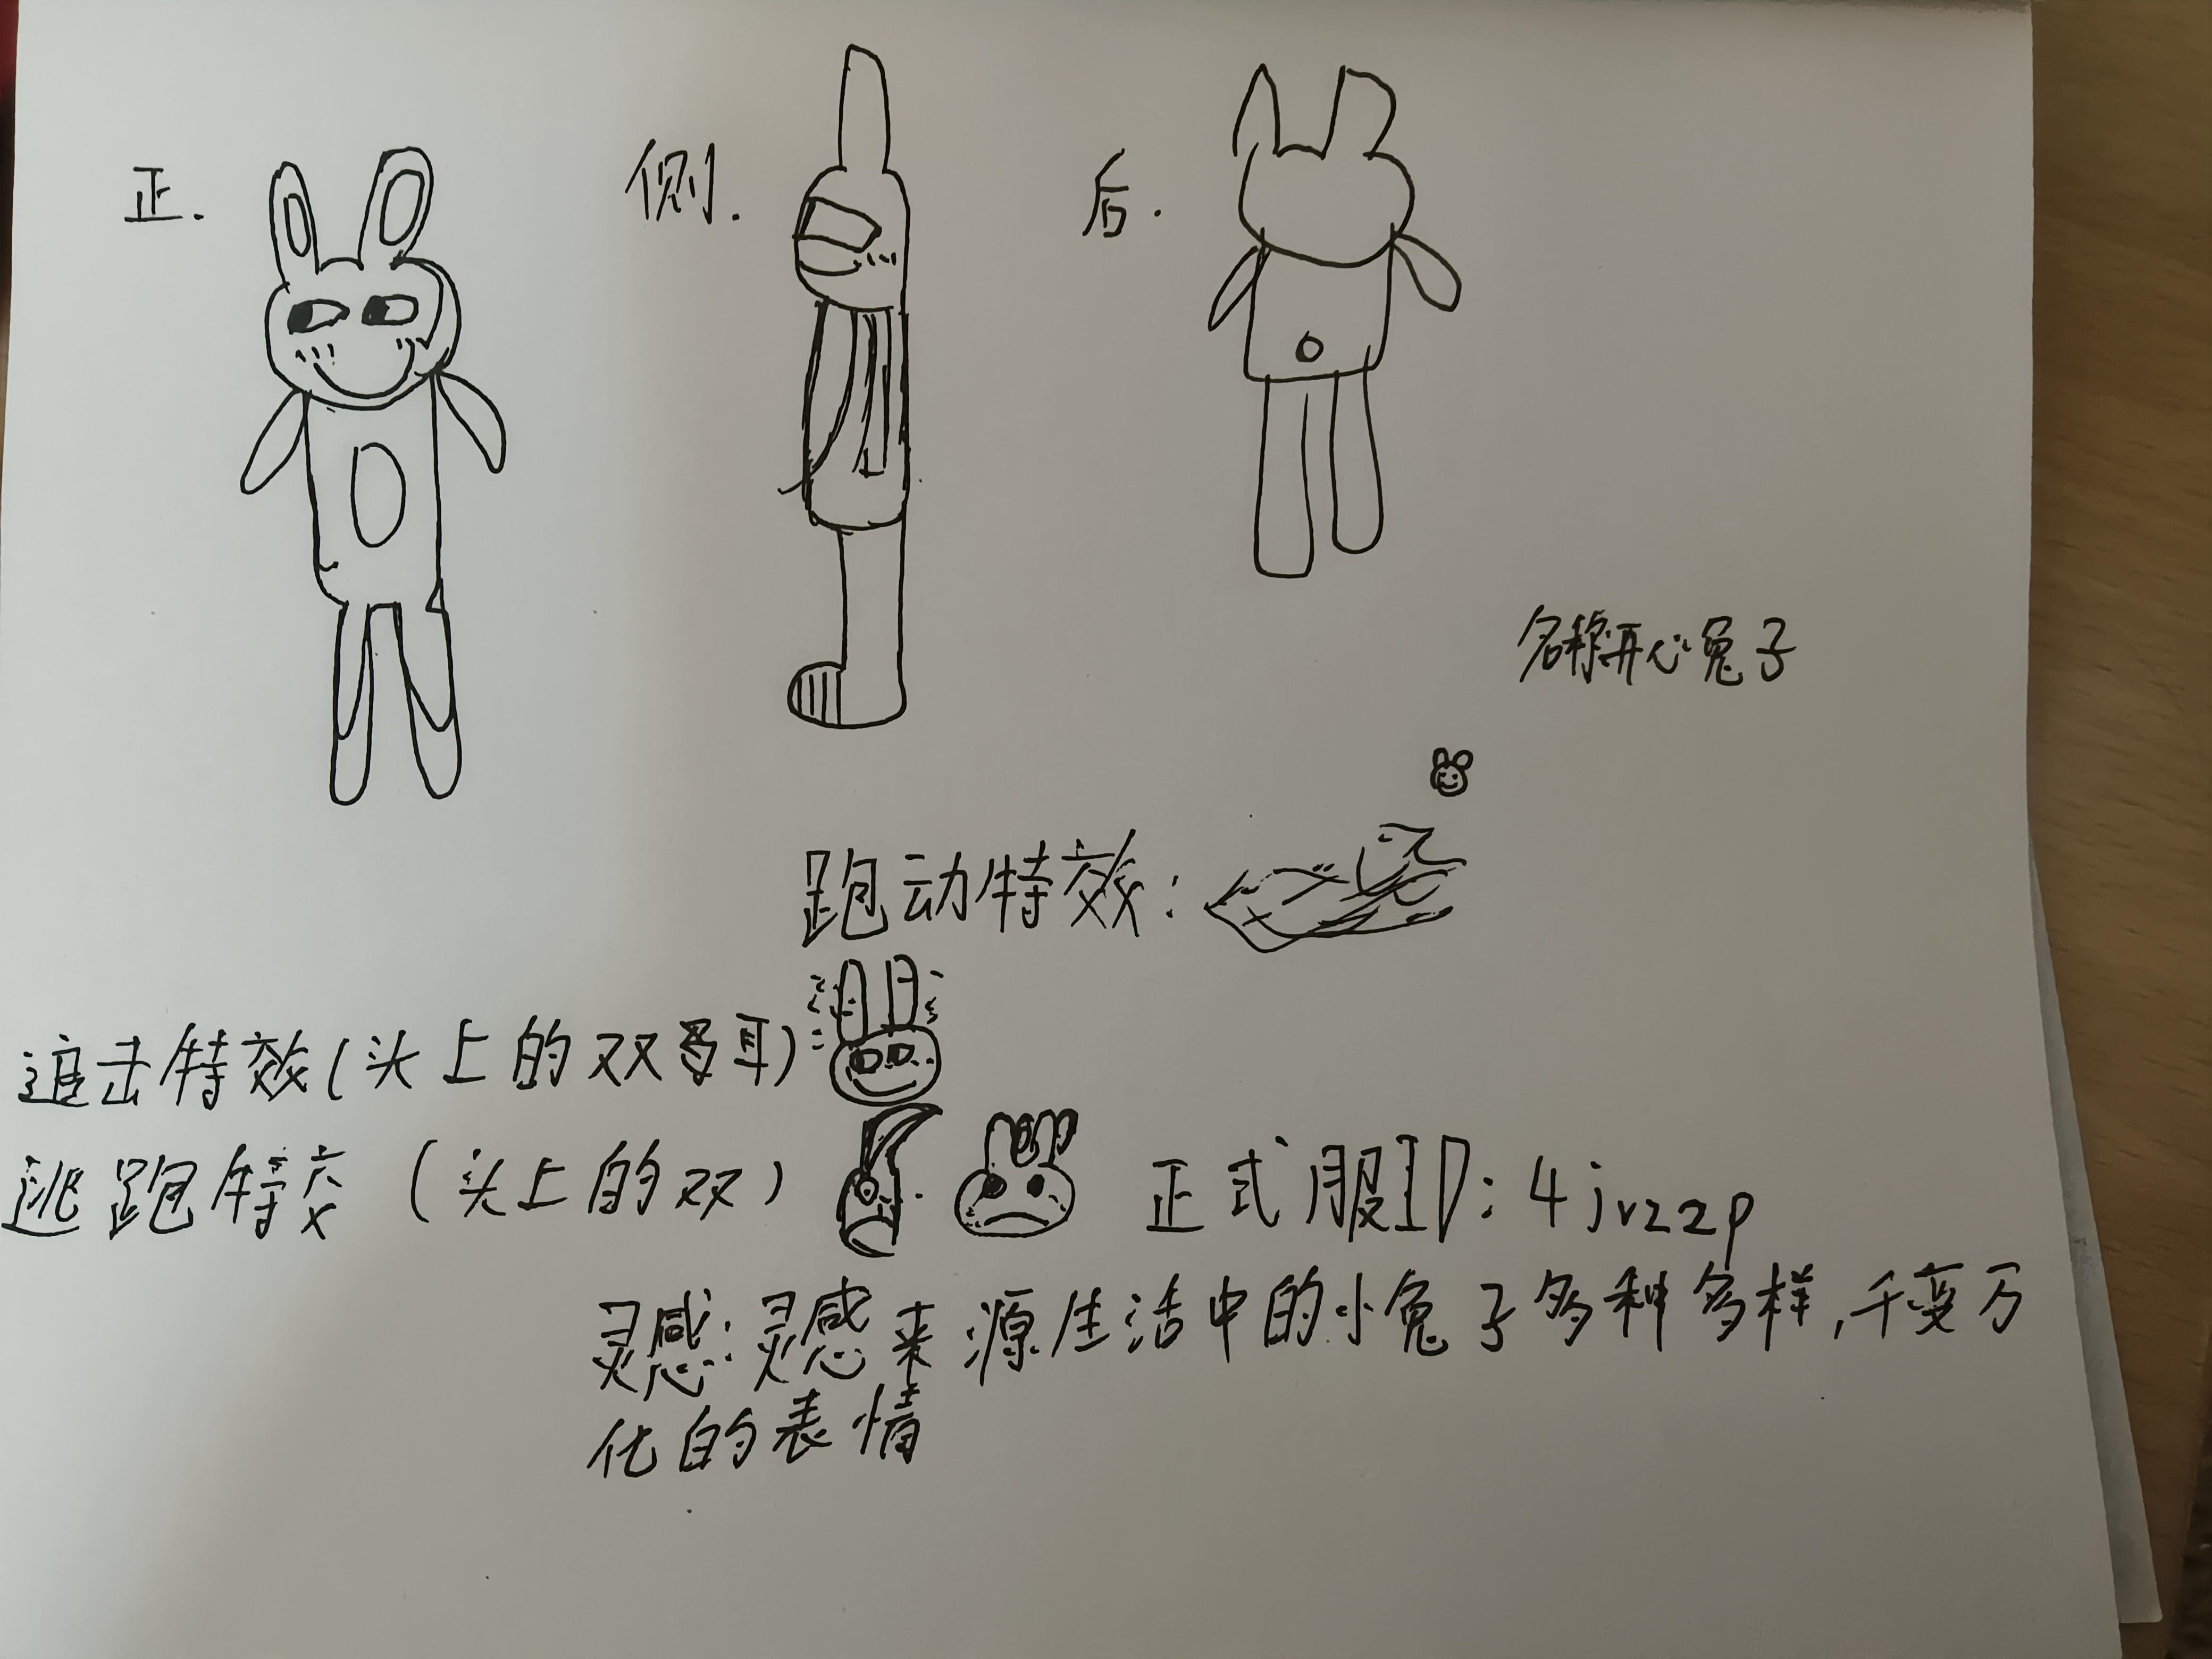 正.
侧.
后.
名称开心兔子
跑动特效:
追击特效(头上的双耳)
逃跑特效(头上的双)
正式服ID:4jvzzp
灵感:灵感来源生活中的小兔子多种多样,千变万
化的表情